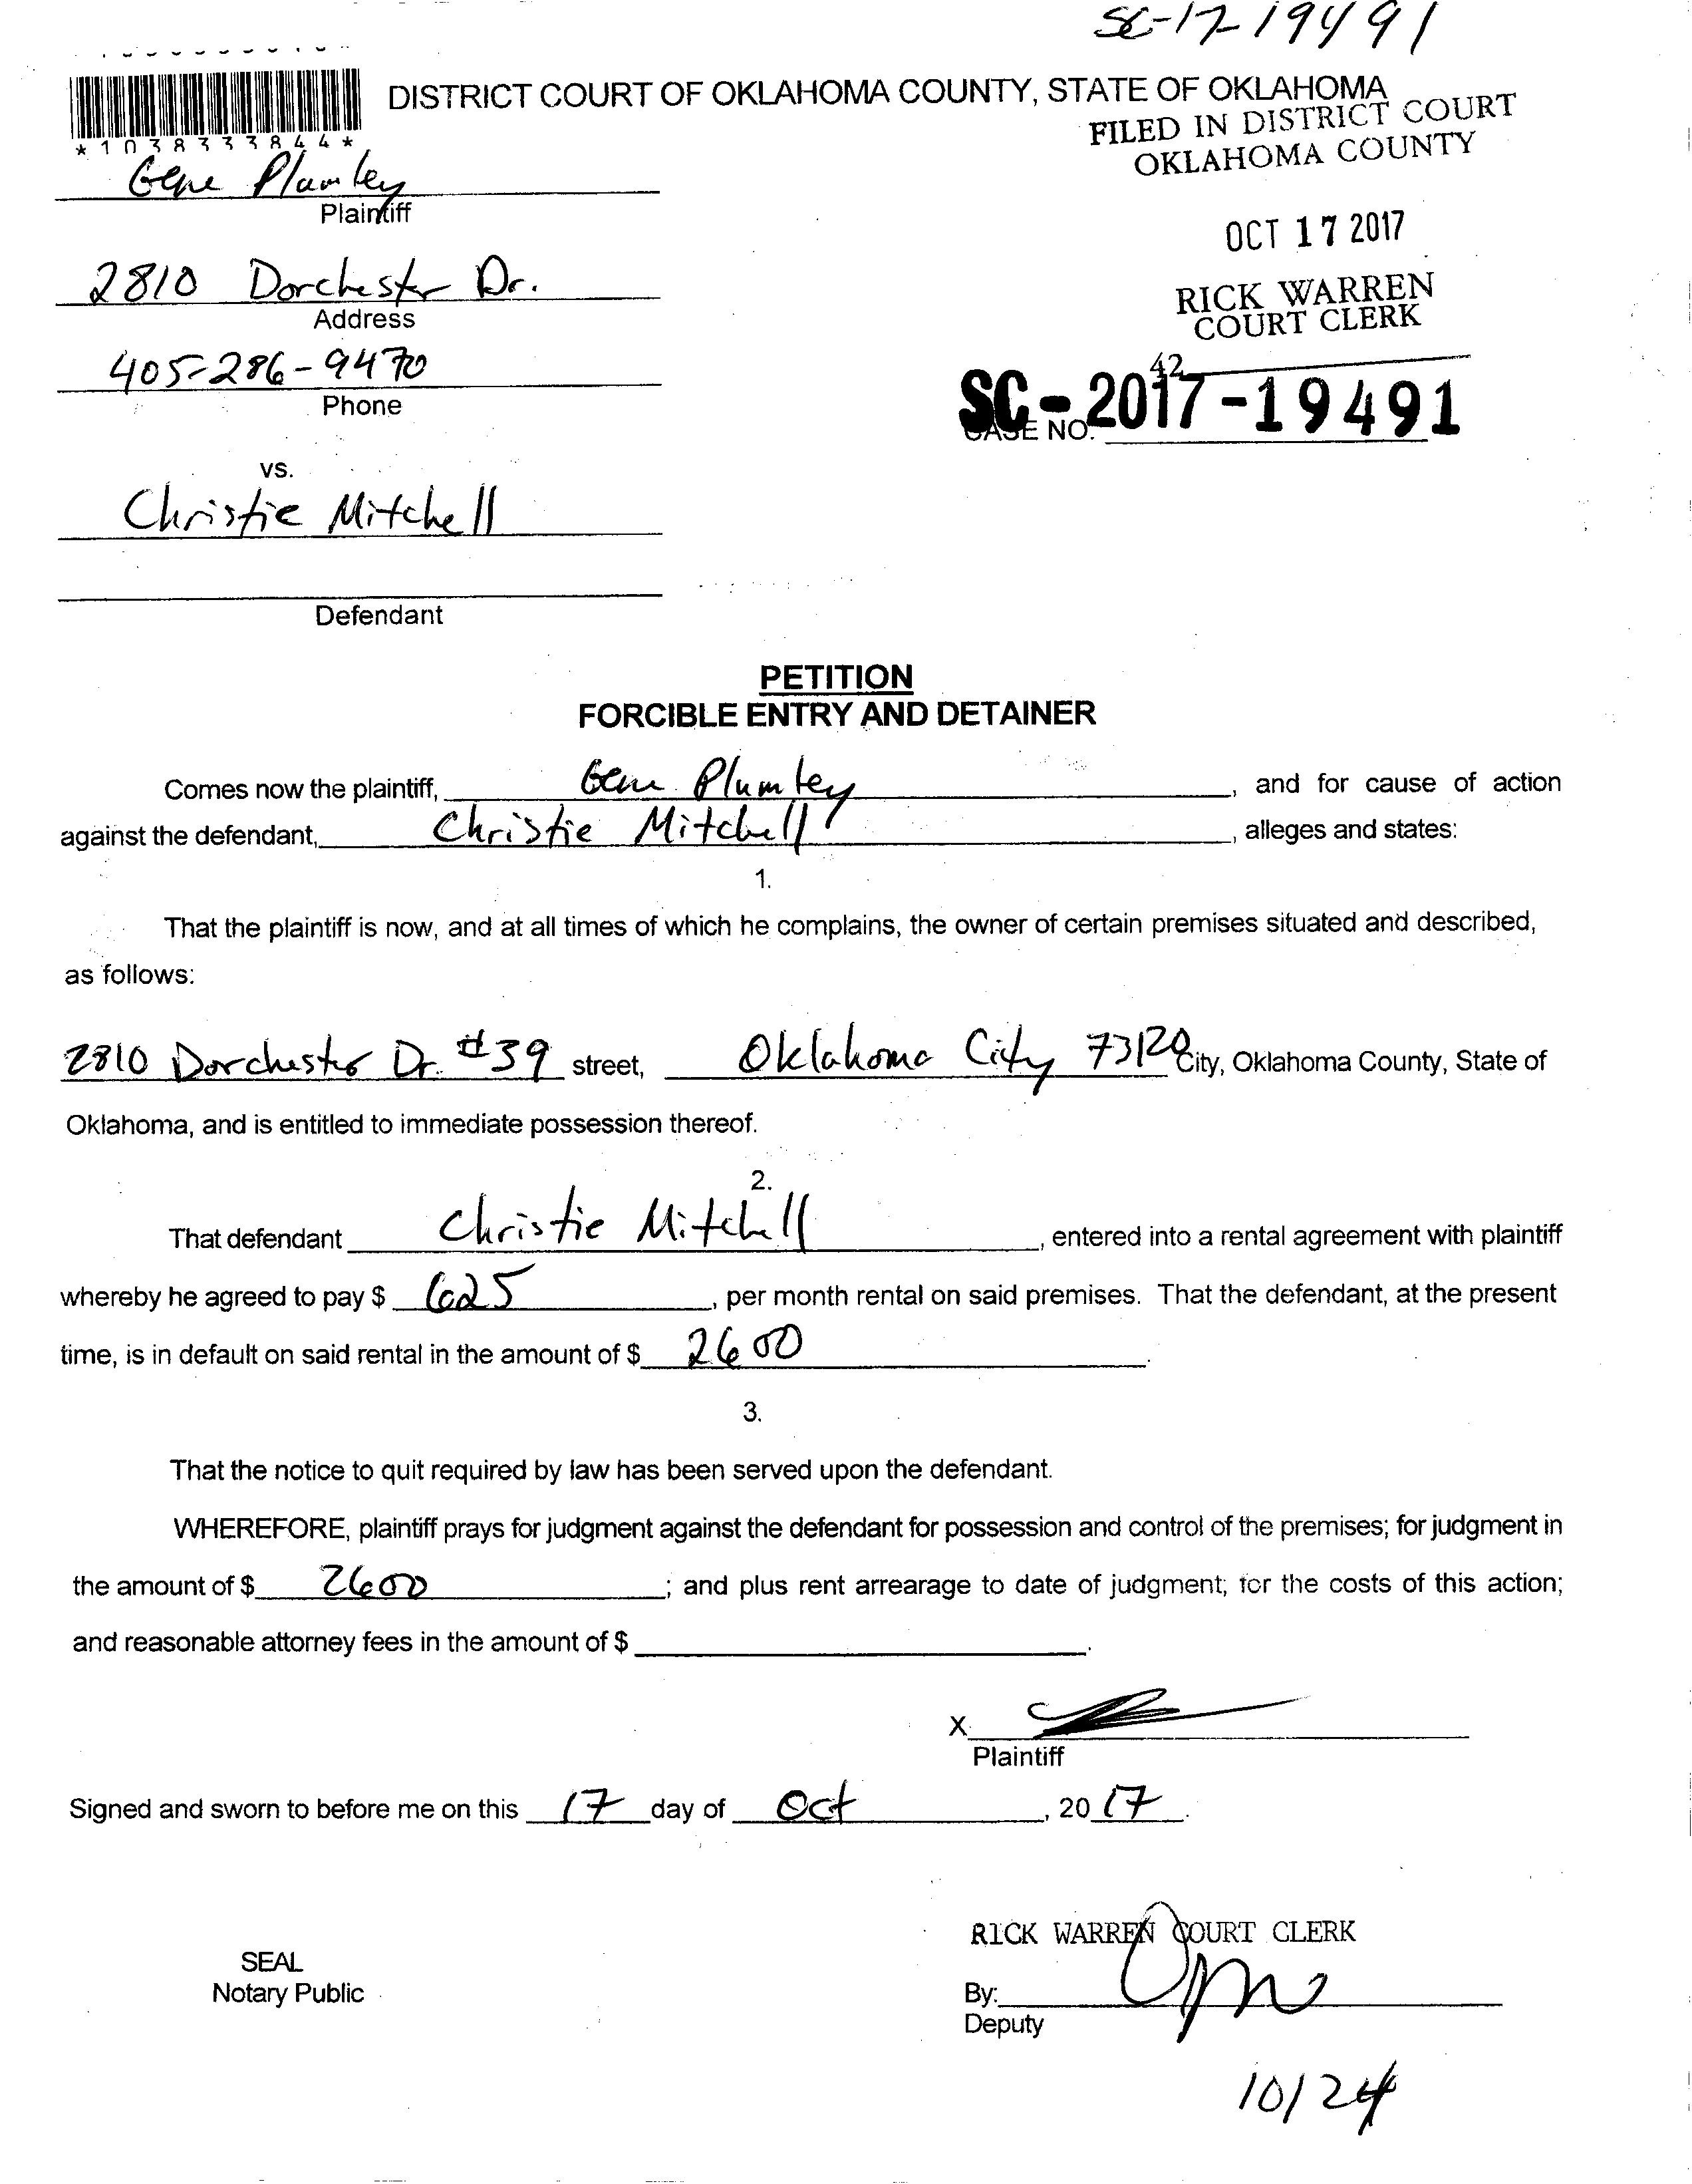 SC-17-19491
DISTRICT COURT OF OKLAHOMA COUNTY, STATE OF OKLAHOMA
FILED IN DISTRICT COURT
OKLAHOMA COUNTY
*1038333844*
Gene Plumley
Plaintiff
OCT 17 2017
2810 Dorchester Dr.
Address
RICK WARREN
COURT CLERK
405-286-9470
Phone
42
SC-2017-19491
CASE NO.
vs.
Christie Mitchell
Defendant
PETITION
FORCIBLE ENTRY AND DETAINER
Comes now the plaintiff, Gene Plumley, and for cause of action
against the defendant, Christie Mitchell, alleges and states:
1.
That the plaintiff is now, and at all times of which he complains, the owner of certain premises situated and described,
as follows:
2810 Dorchester Dr. #39 street, Oklahoma City 73120 City, Oklahoma County, State of
Oklahoma, and is entitled to immediate possession thereof.
2.
That defendant Christie Mitchell, entered into a rental agreement with plaintiff
whereby he agreed to pay $ 625, per month rental on said premises. That the defendant, at the present
time, is in default on said rental in the amount of $ 2600.
3.
That the notice to quit required by law has been served upon the defendant.
WHEREFORE, plaintiff prays for judgment against the defendant for possession and control of the premises; for judgment in
the amount of $ 2600; and plus rent arrearage to date of judgment; for the costs of this action;
and reasonable attorney fees in the amount of $ .
X
Plaintiff
Signed and sworn to before me on this 17 day of Oct, 20 17.
RICK WARREN COURT CLERK
SEAL
Notary Public
By:
Deputy
10/24